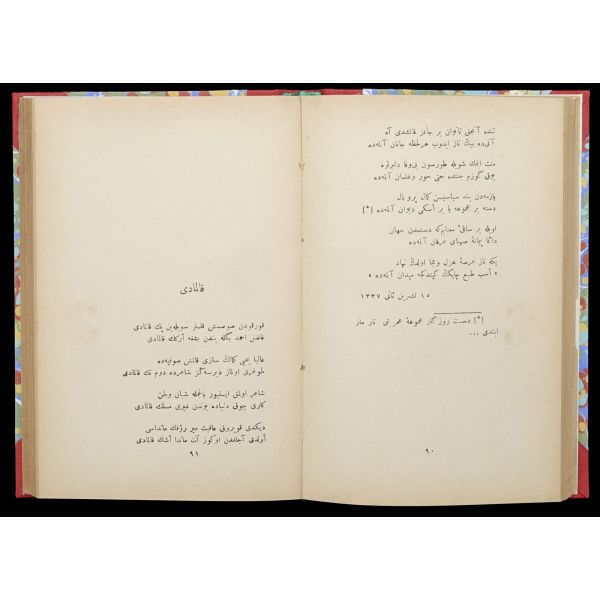 تنده آنجق ناتوان بر جانمز قالشدی آه
آنی ده بیڭ ناز ایدوب هرلحظه جانان آلمه ده
منت ایتمك شویله طورسون بی وفا دلبرلره
یوق گوزم جنتده حتی حور وغلمان آلمه ده
یازمه دن بند سیاسیسن كمال پروبال
دسته بر مجموعه یا بر اسكی دیوان آلمه ده [*]
اویله بر ساقی معنایم كه دستمدن جهان
دائما پیمانهٔ صهبای عرفان آلمه ده
یكه تاز عرصهٔ هزل اولدڭ نهاد
« اسب طبع چاپكڭ گیتدكه میدان آلمه ده »
١٥ تشرین ثانی ١٣٣٧
[*] دست روزگار مجموعهٔ عمر نی تار مار
ایتدی ...
٩٠
قالمادی
قورقودن صوصمش قلملر سویله ین یك قالمادی
فاضل احمد بگله بندن بشقه أركك قالمادی
غالبا یحیی كمالڭ سازی قالمش صوفیه ده
طوغری اولماز دیرسه ڭز شاعرده دوم تك قالمادی
شاعر اولمق ایسته یور بالجمله شبان وطن
كاری چوق دنیاده بوندن غیری مسلك قالمادی
دیكدی قویروغی عاقبت میر رؤفك مانداسی
اولدی آجلغدن اوكوز آت ماندا أشك قالمادی
٩١